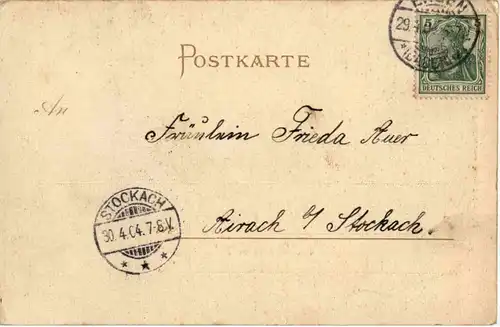 29.
5
DEUTSCHES REICH
POSTKARTE
An
Fräulein Frieda Auer
STOCKACH
30.4.04.7-8.V.
Airach b/ Stockach.